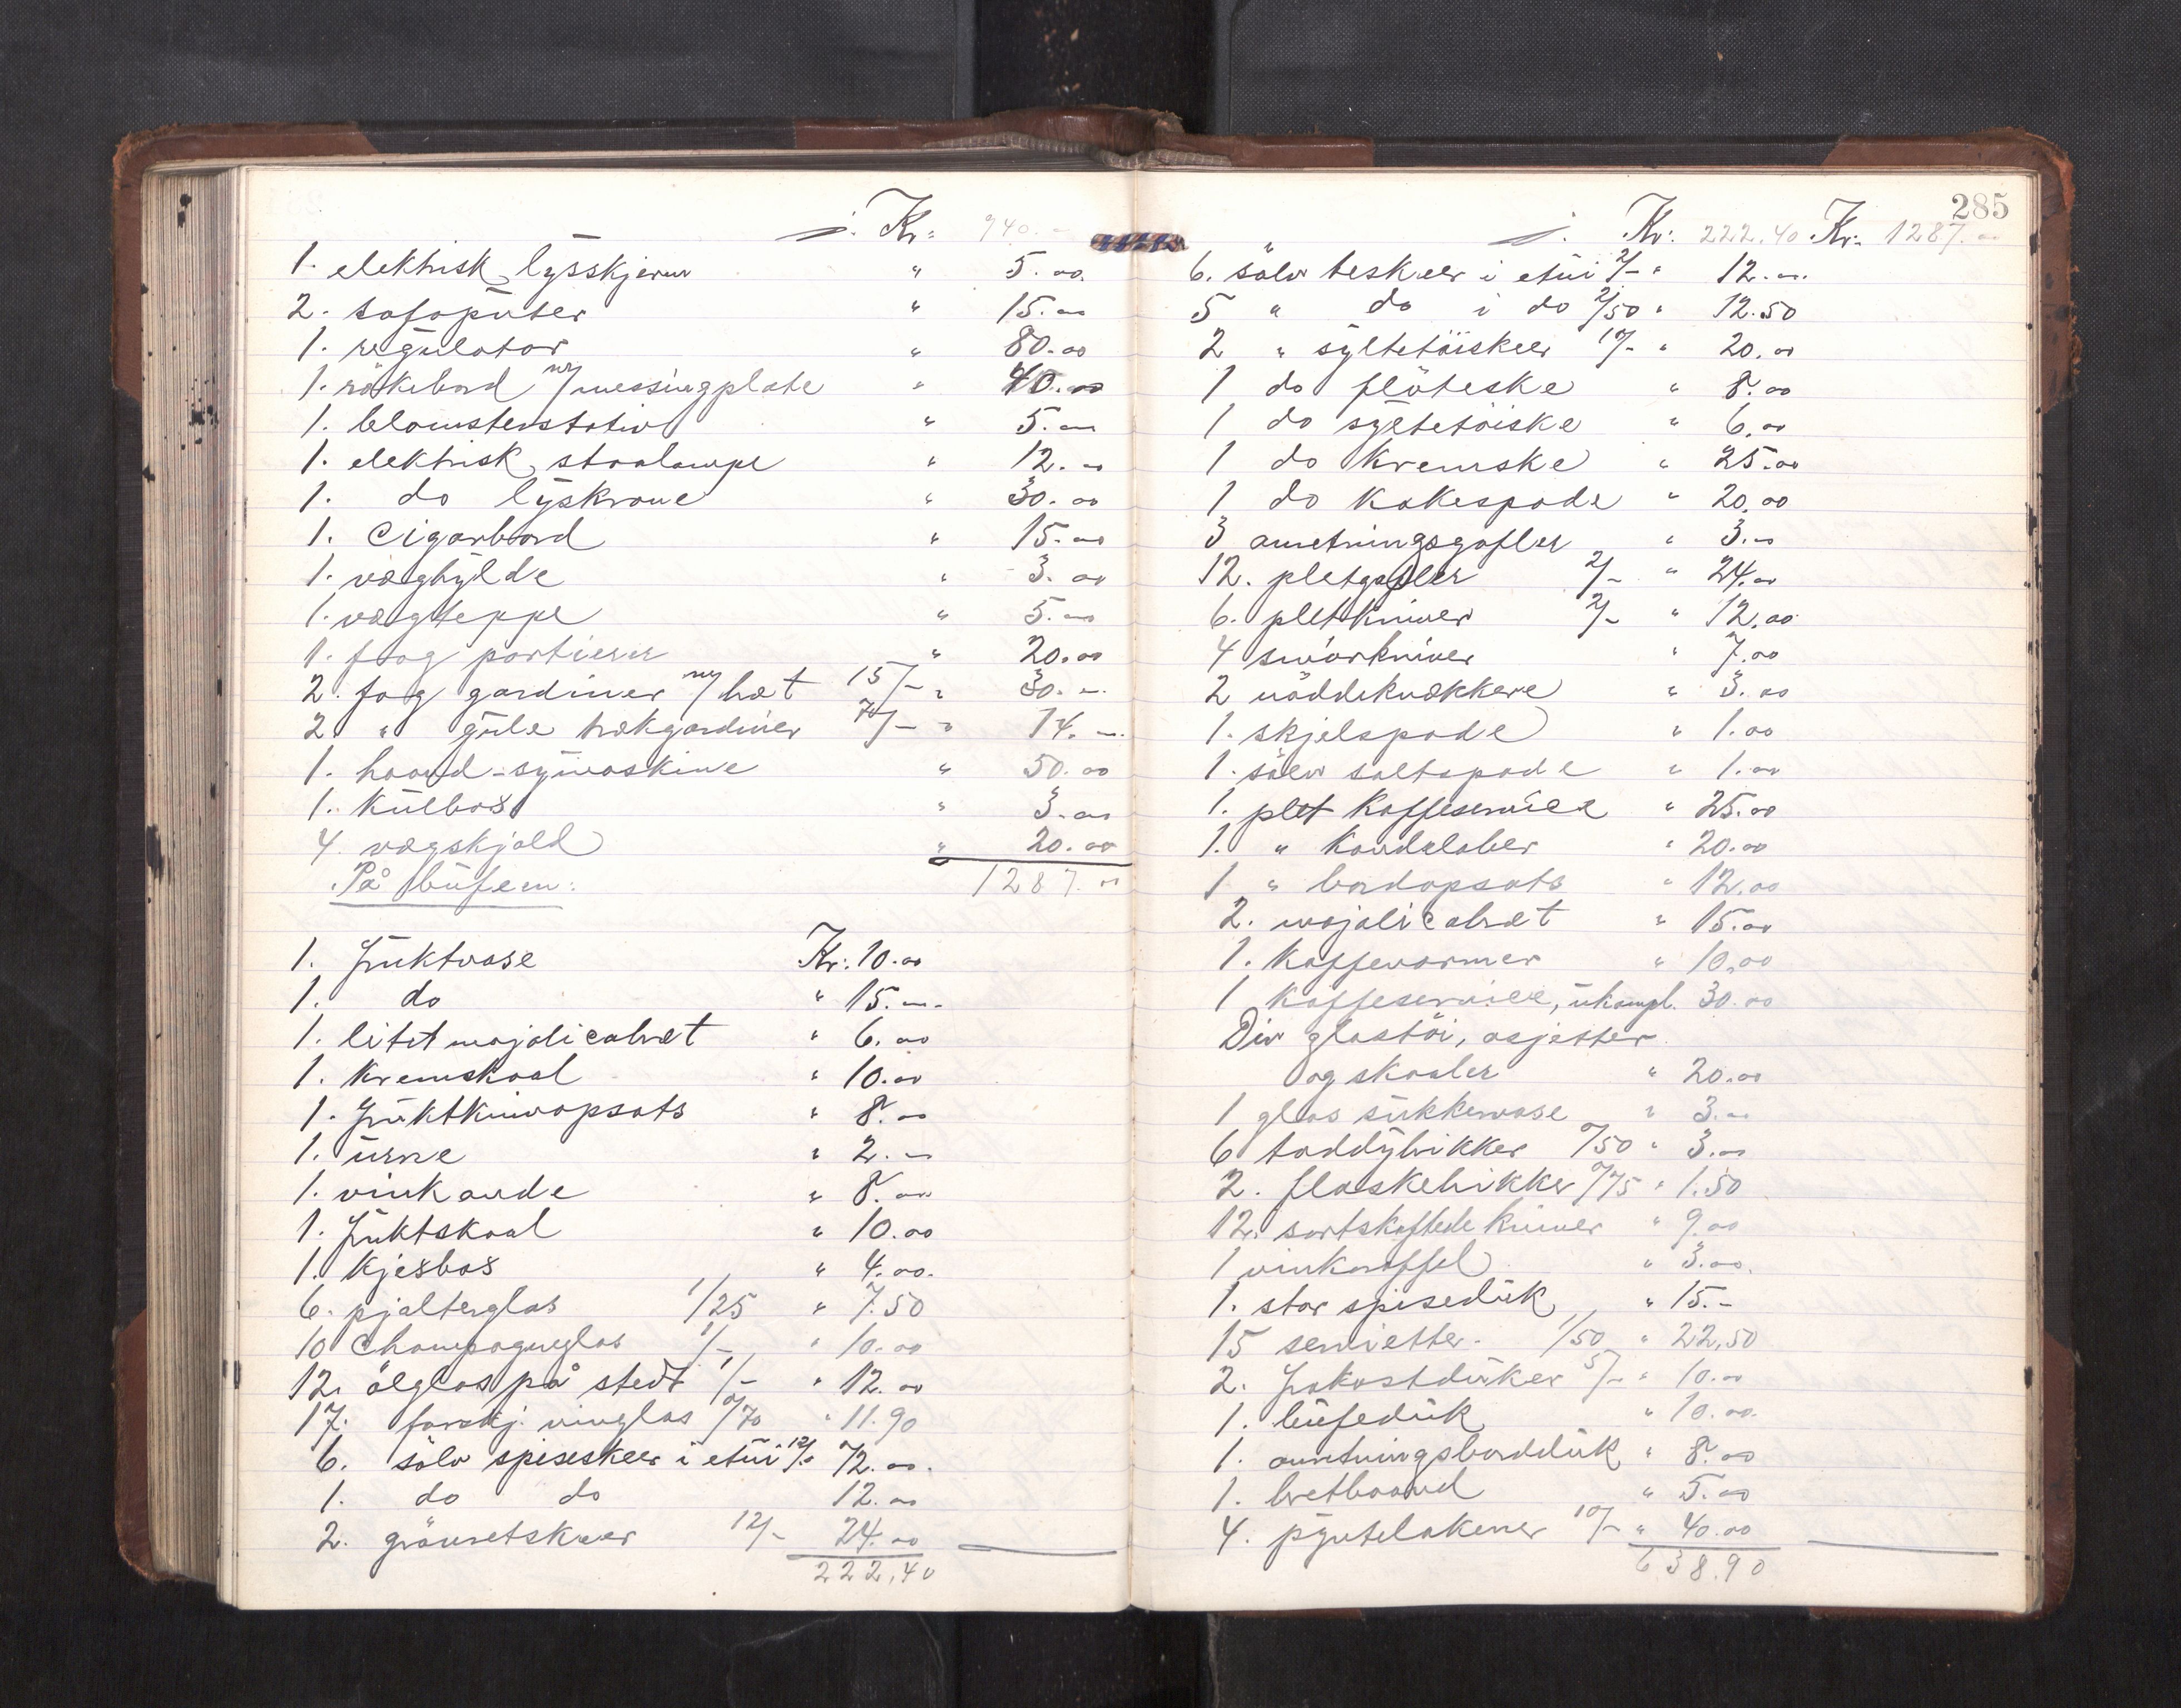 Kr: 940.-
1. elektrisk lysskjerm " 5.00
2. sofaputer " 15.00
1. regulator " 80.00
1. rökebord m/messingplate " 40.00
1. blomsterstativ " 5.00
1. elektrisk staalampe " 12.00
1. do lyskrone " 30.00
1. Cigarbord " 15.00
1. væghylde " 3.00
1. vægteppe " 5.00
1. fag portierer " 20.00
2. fag gardiner m/ bræt 15/- " 30.00
2 " gule trækgardiner 7/- " 14.00
1. haand-symaskine " 50.00
1. Kulbox " 3.00
4. vægskjold " 20.00
1287.00
På buffeen:
1. fruktvase Kr: 10.00
1. do " 15.00
1. litet majolicabræt " 6.00
1. Kremskaal " 10.00
1. fruktknivopsats " 8.00
1. urne " 2.00
1. vinkande " 8.00
1. fruktskaal " 10.00
1. Kjexbox " 4.00
6. pjalterglas 1/25 " 7.50
10 Champagneglas 1/- " 10.00
12. ölglas på stedt 1/- " 12.00
17. forskj. vinglas 0/70 " 11.90
6. sölv spiseskeer i etui 12/- 72.00
1. do do 12.00
2. grönretskeer 12/- 24.00
222.40
285
Kr: 222.40 Kr: 1287.00
6. sölv teskeer i etui 2/- " 12.00
5 " do i do 2/50 " 12.50
2 " syltetöiskeer 10/- " 20.00
1 do flöteske " 8.00
1 do syltetöiske " 6.00
1 do Kremske " 25.00
1 do Kakespade " 20.00
3 anretningsgafler " 3.00
12. pletgafler 2/- " 24.00
6. pletkniver 2/- " 12.00
4 smörkniver " 7.00
2 nöddeknækkere " 3.00
1. skjelspade " 1.00
1. sölv saltspade " 1.00
1. plet Kaffeservice " 25.00
1. " Kandelaber " 20.00
1 " bordopsats " 12.00
2. majolicabræt " 15.00
1. Kaffevarmer " 10.00
1 Kaffeservice, ukompl. 30.00
Div glastöi, asjetter
og skaaler " 20.00
1 glas sukkervase " 3.00
6 toddybrikker 0/50 " 3.00
2. flaskebrikker 0/75 " 1.50
12. sortskaftede kniver " 9.00
1 vinkaraffel " 3.00
1. stor spiseduk " 15.-
15 servietter. 1/50 " 22.50
2. frokostduker 5/- " 10.00
1. buffeduk " 10.00
1. anretningsbordduk " 8.00
1. bretbaand " 5.00
4. pyntelakener 10/- " 40.00
638.90